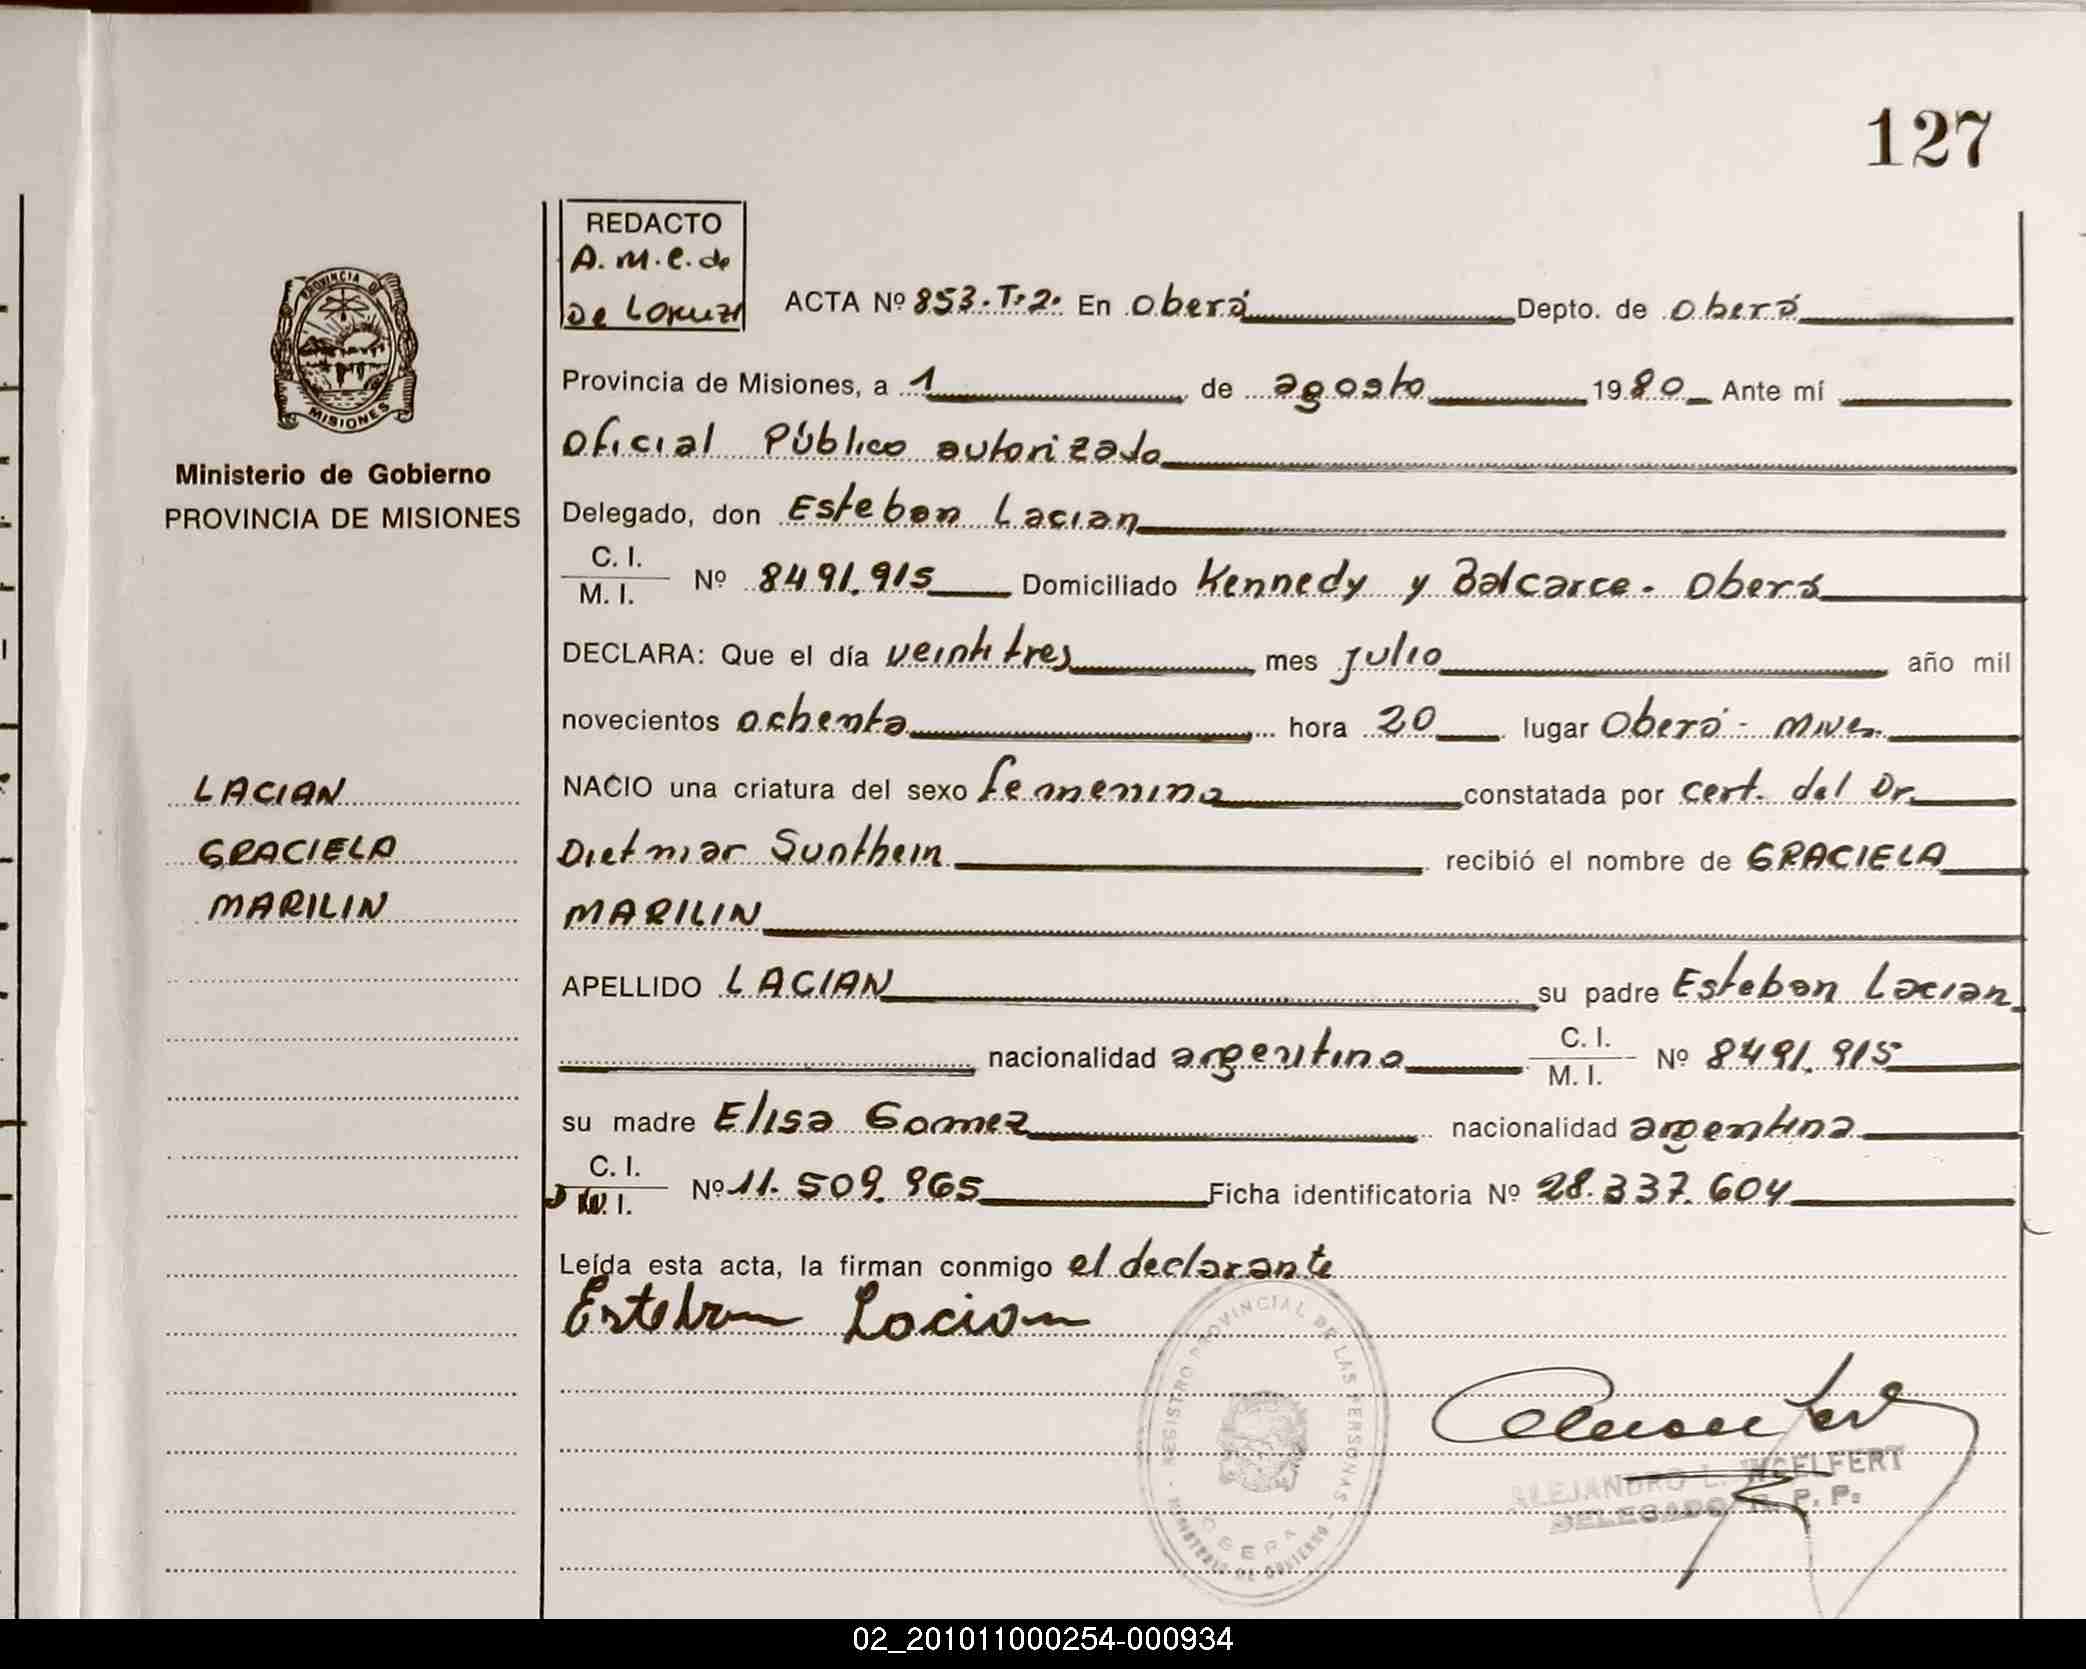 127
REDACTO
A. M. C. de
De Loruzi
ACTA Nº 853. T. 2. En Oberá Depto. de Oberá
Provincia de Misiones, a 1 de agosto 1980 Ante mí
Oficial Público autorizado
PROVINCIA DE
MISIONES
Ministerio de Gobierno
PROVINCIA DE MISIONES
Delegado, don Esteban Lacian
C. I.
M. I. Nº 8491.915 Domiciliado Kennedy y Balcarce. Oberá
DECLARA: Que el día veintitres mes julio año mil
novecientos ochenta hora 20 lugar Oberá -
LACIAN
GRACIELA
MARILIN
NACIO una criatura del sexo femenino constatada por cert. del Dr.
Dietmar Sunthein recibió el nombre de GRACIELA
MARILIN
APELLIDO LACIAN su padre Esteban Lacian
nacionalidad argentina C. I.
M. I. Nº 8491.915
su madre Elisa Gomez nacionalidad argentina
C. I.
M. I. Nº 11.509.965 Ficha identificatoria Nº 28.337.604
Leída esta acta, la firman conmigo el declarante
Esteban Lacian
REGISTRO PROVINCIAL DE LAS PERSONAS
MINISTERIO DE GOBIERNO
OBERA
ALEJANDRO L. WOELFERT
DELEGADO R. P. P.
02_201011000254-000934